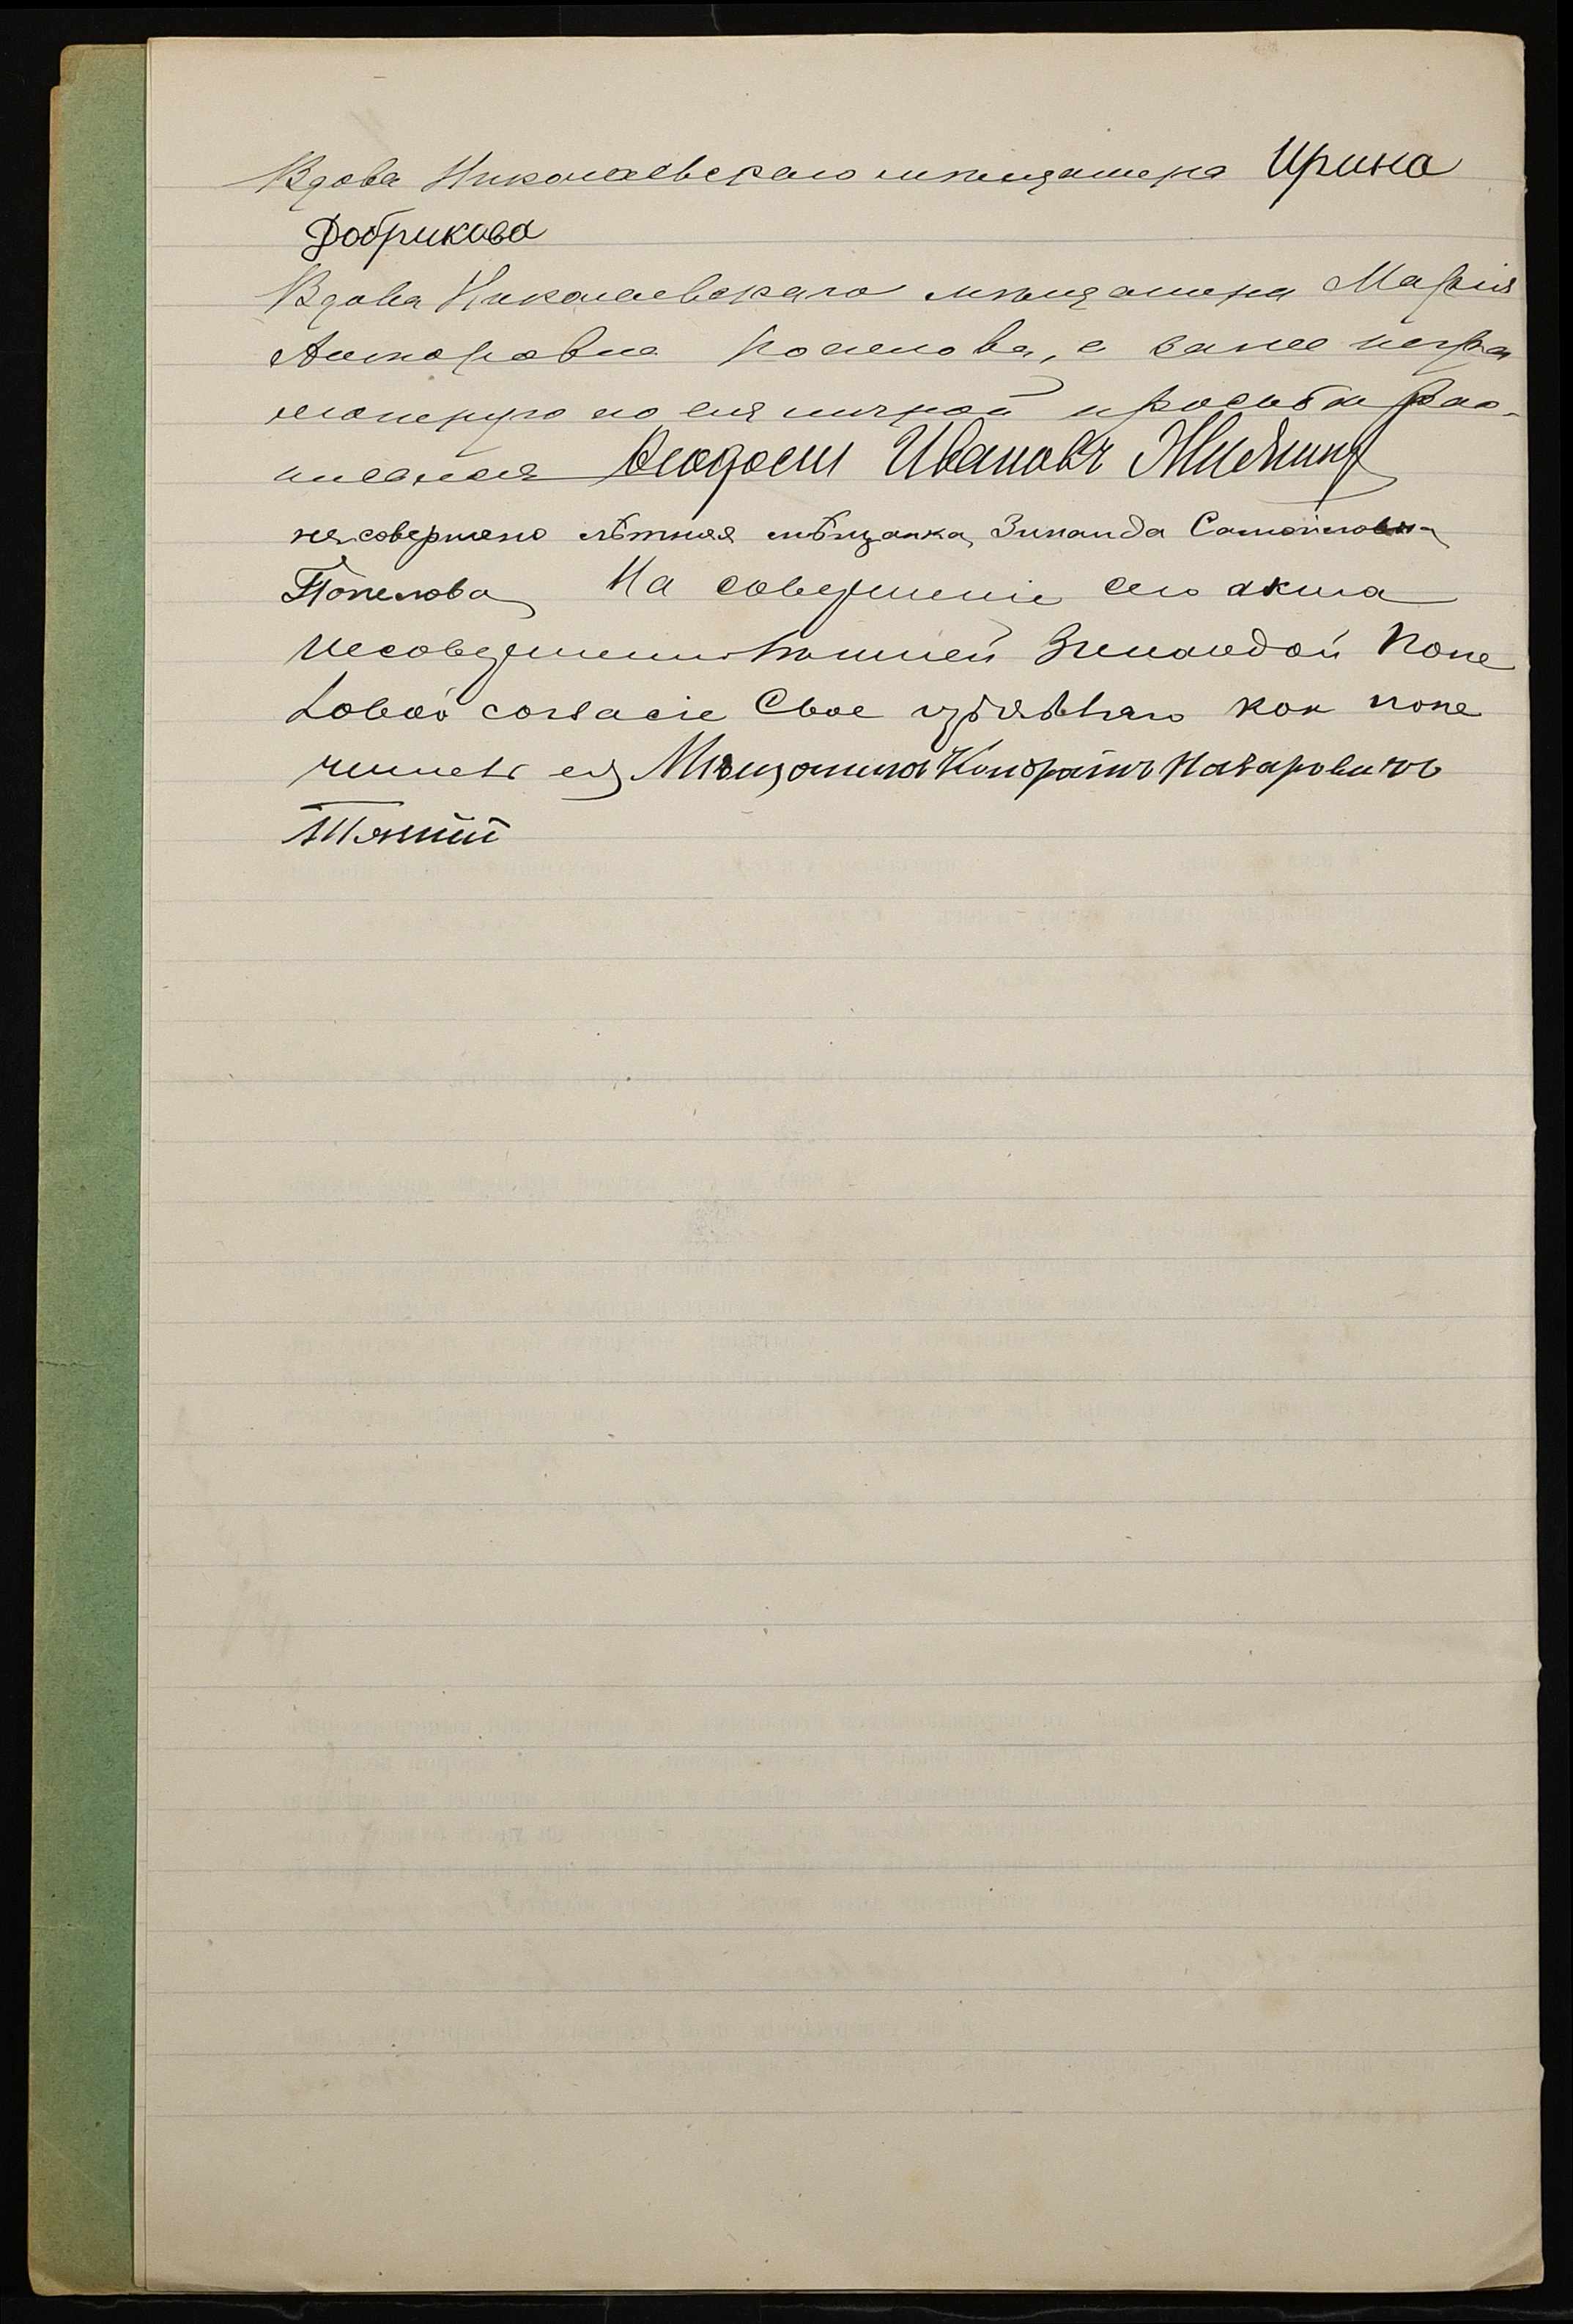 Вдова Николаевскаго мѣщанина Ирина
Добрикова
Вдова Николаевскаго мѣщанина Марія
Попелова, а за нее негра
мотную по ея личной просьбѣ рас-
писался Ѳеодосій Ивановъ
несовершено лѣтняя мѣщанка, Зинаида Самойловна
Попелова На совершеніе сего акта
несовершеннолѣтней Зинаидой Попе
ловой согласіе Свое изъявляю как попе
читель ея Мѣщанинъ Кондратъ Назаровичъ